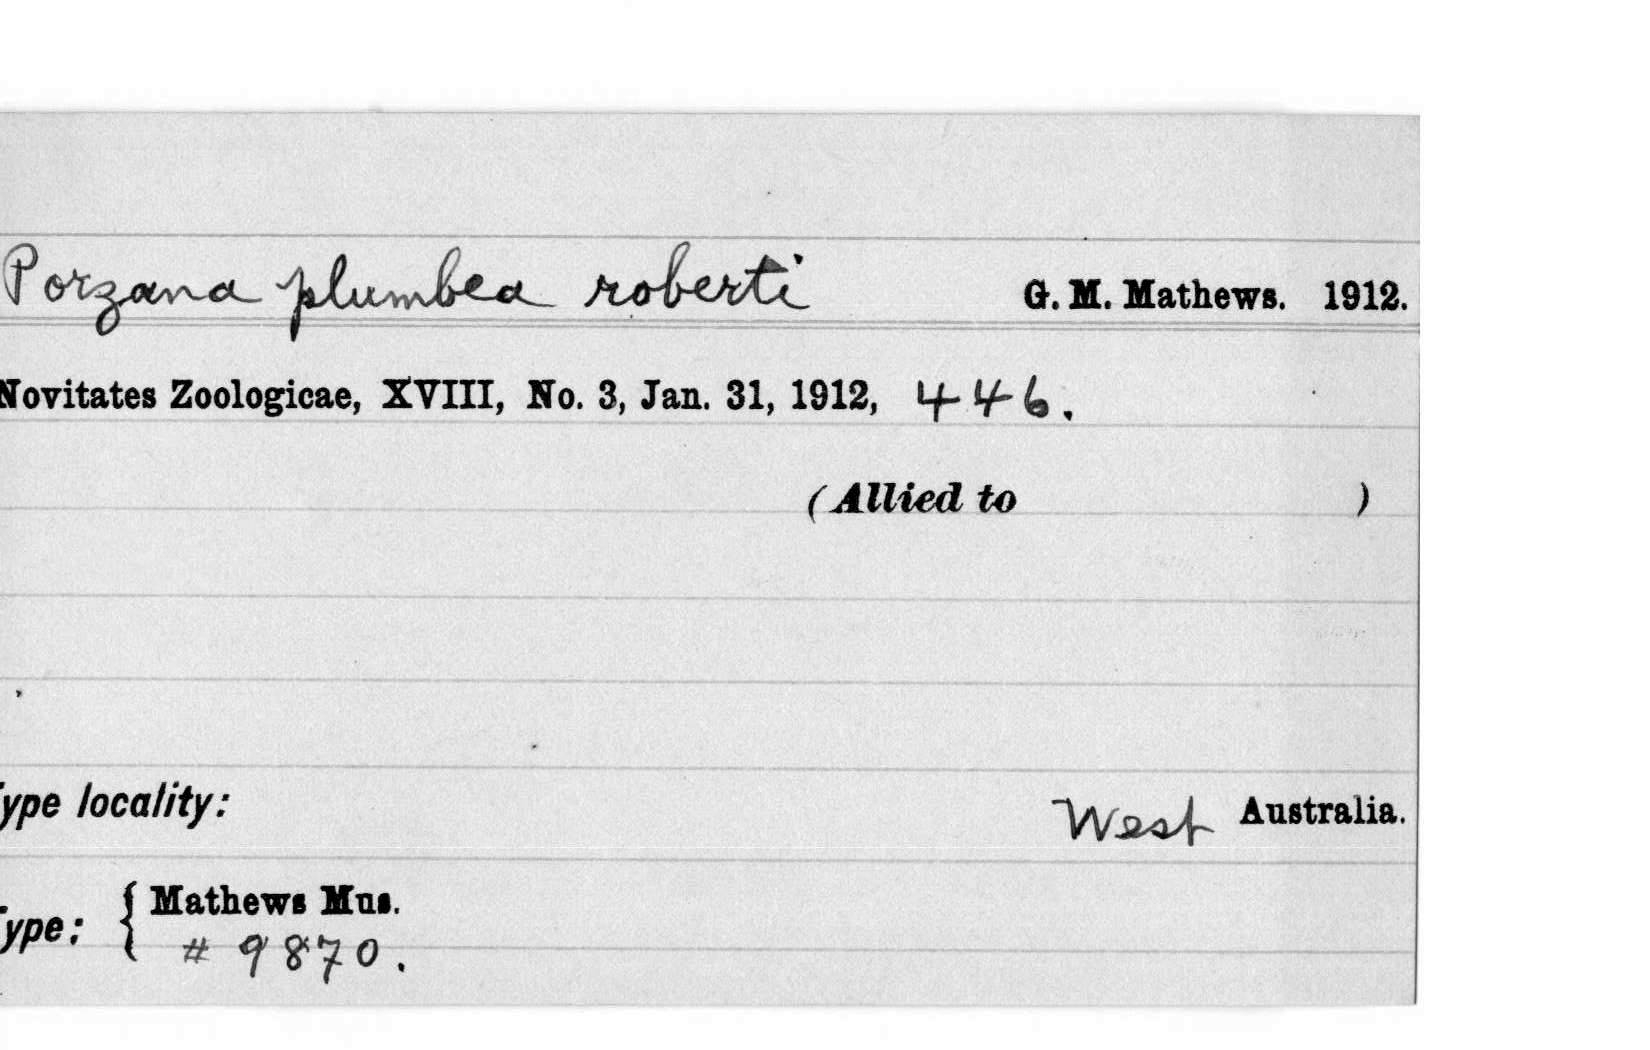 Porzana plumbea roberti G. M. Mathews. 1912.
Novitates Zoologicae, XVIII, No. 3, Jan. 31, 1912, 446.
(Allied to )
ype locality: West Australia.
ype: { Mathews Mus.
# 9870.